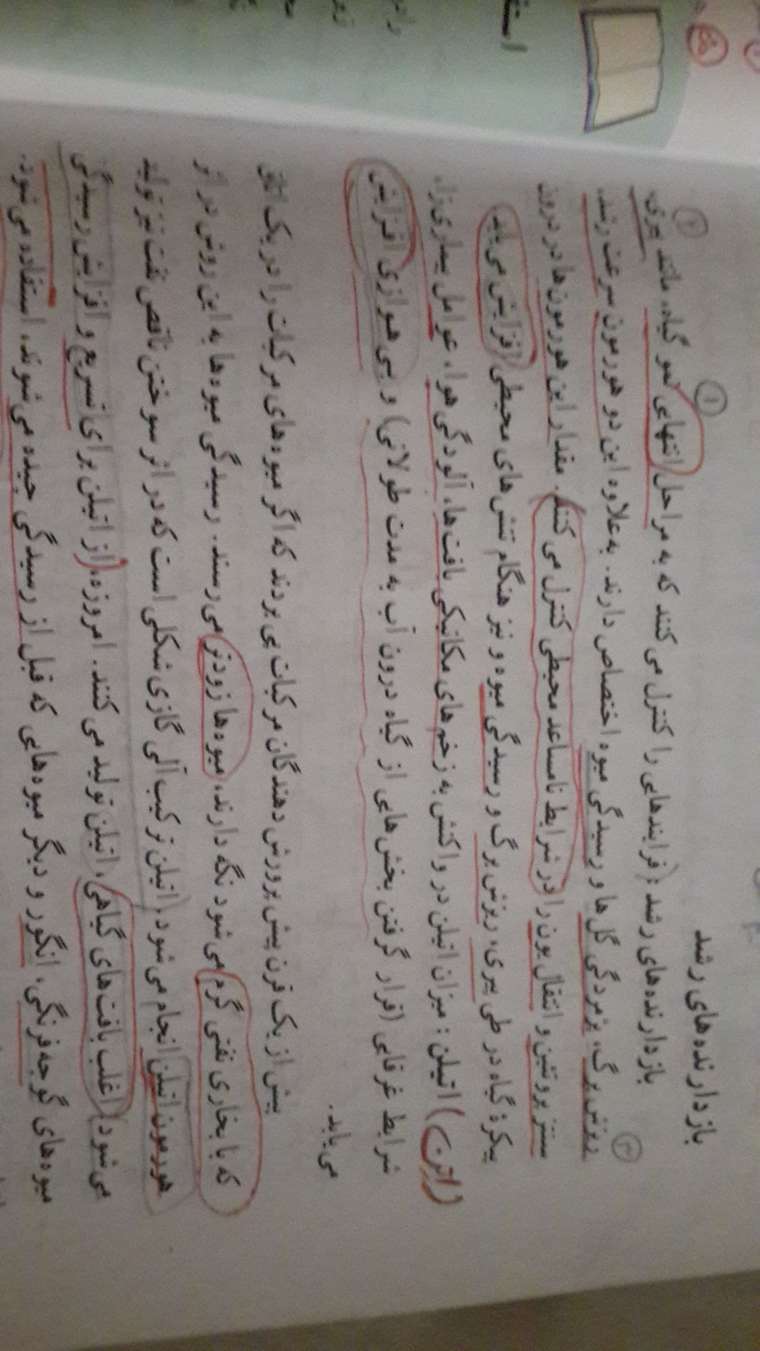 بازدارنده‌های رشد
بازدارنده‌های رشد: فرایندهایی را کنترل می‌کنند که به مراحل انتهایی نمو گیاه، مانند پیری،
ریزش برگ، پژمردگی گل‌ها و رسیدگی میوه اختصاص دارند. به‌علاوه این دو هورمون سرعت رشد،
سنتز پروتئین و انتقال یون را در شرایط نامساعد محیطی کنترل می‌کنند. مقدار این هورمون‌ها در درون
پیکرهٔ گیاه در طی پیری، ریزش برگ و رسیدگی میوه و نیز هنگام تنش‌های محیطی افزایش می‌یابد.
(اتن) اتیلن: میزان اتیلن در واکنش به زخم‌های مکانیکی بافت‌ها، آلودگی هوا، عوامل بیماری‌زا،
شرایط غرقابی (قرار گرفتن بخش‌هایی از گیاه درون آب به مدت طولانی) و بی‌هوازی افزایش
می‌یابد.
بیش از یک قرن پیش پرورش دهندگان مرکبات پی بردند که اگر میوه‌های مرکبات را در یک اتاق
که با بخاری نفتی گرم می‌شود نگه دارند، میوه‌ها زودتر می‌رسند. رسیدگی میوه‌ها به این روش در اثر
هورمون اتیلن انجام می‌شود. اتیلن ترکیب آلی گازی شکلی است که در اثر سوختن ناقص نفت نیز تولید
می‌شود. اغلب بافت‌های گیاهی، اتیلن تولید می‌کنند. امروزه، از اتیلن برای تسریع و افزایش رسیدگی
میوه‌های گوجه‌فرنگی، انگور و دیگر میوه‌هایی که قبل از رسیدگی چیده می‌شوند، استفاده می‌شود.